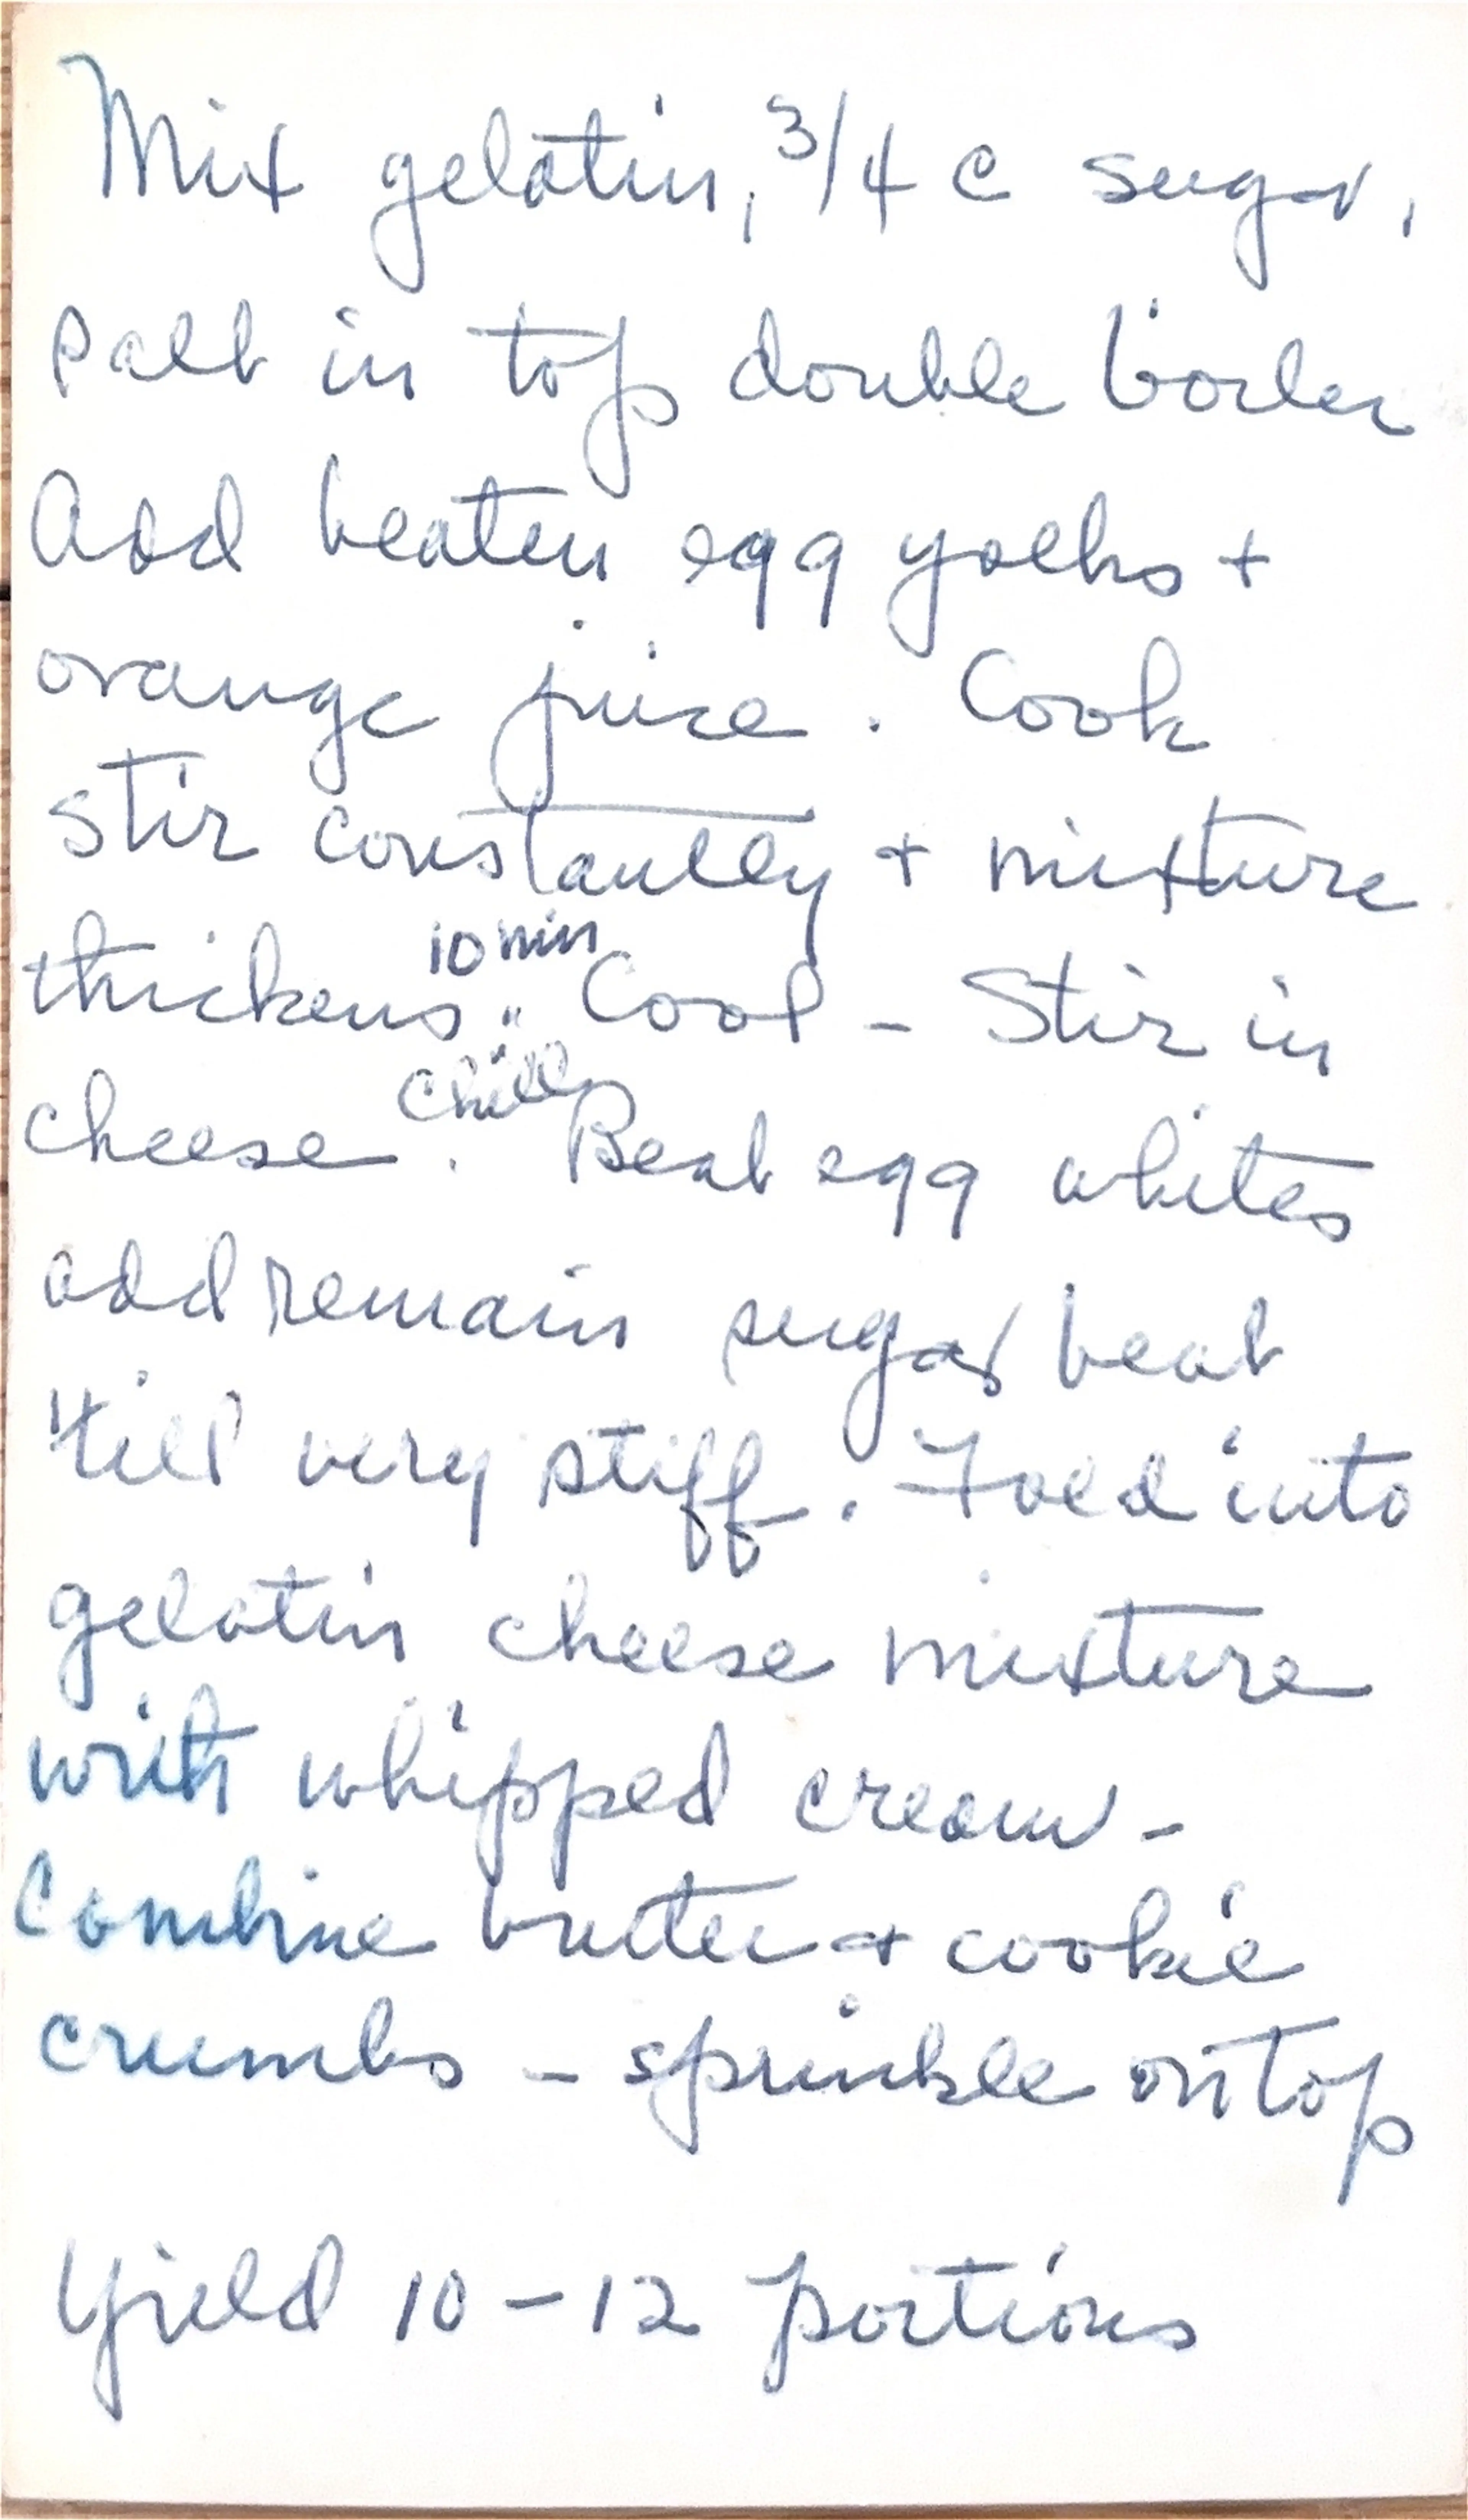 Mix gelatin, 3/4 c sugar,
salt in top double boiler
Add beaten egg yolks +
orange juice. Cook
stir constantly + mixture
thickens. 10 min Cool - Stir in
cheese. Chill Beat egg whites
add remain sugar beat
'till very stiff. Fold into
gelatin cheese mixture
with whipped cream -
Combine butter + cookie
crumbs - sprinkle on top
Yield 10-12 portions